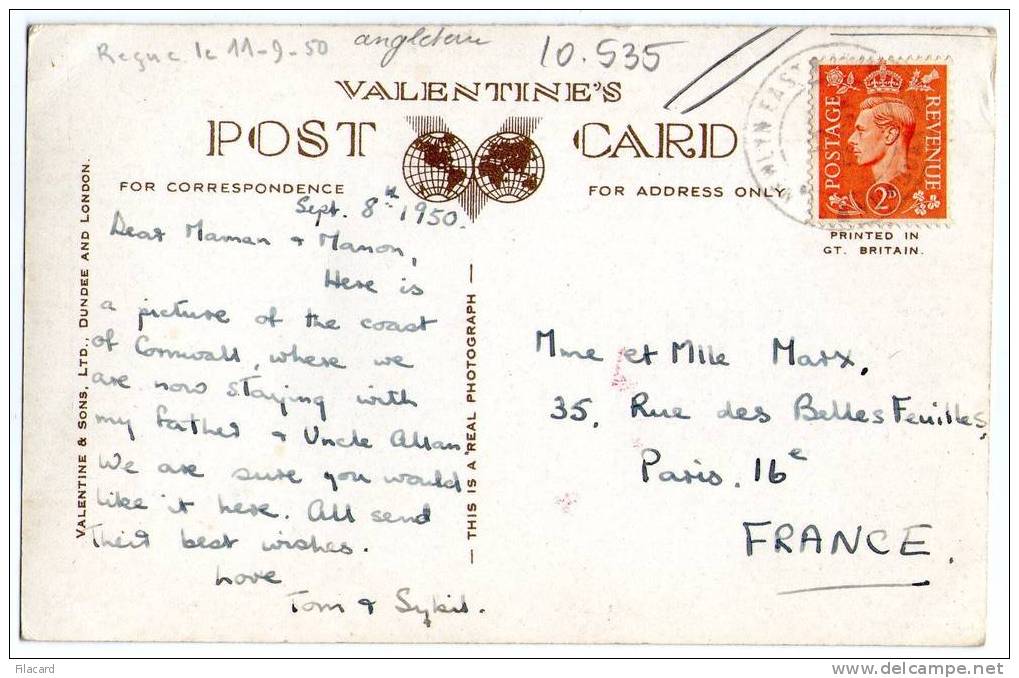 Reçue le 11-9-50
angleterre
10.535
VALENTINE'S
POST CARD
FOR CORRESPONDENCE
FOR ADDRESS ONLY
POSTAGE
REVENUE
2D
PRINTED IN
GT. BRITAIN.
Sept. 8th 1950.
Dear Maman & Manon,
Here is
a picture of the coast
of Cornwall, where we
are now staying with
my father & Uncle Allan.
We are sure you would
like it here. All send
their best wishes.
Love
Tom & Sybil.
VALENTINE & SONS, LTD., DUNDEE AND LONDON.
— THIS IS A REAL PHOTOGRAPH —
Mme et Mlle Marx,
35, Rue des Belles Feuilles,
Paris. 16e
FRANCE.
Filacard
www.delcampe.net